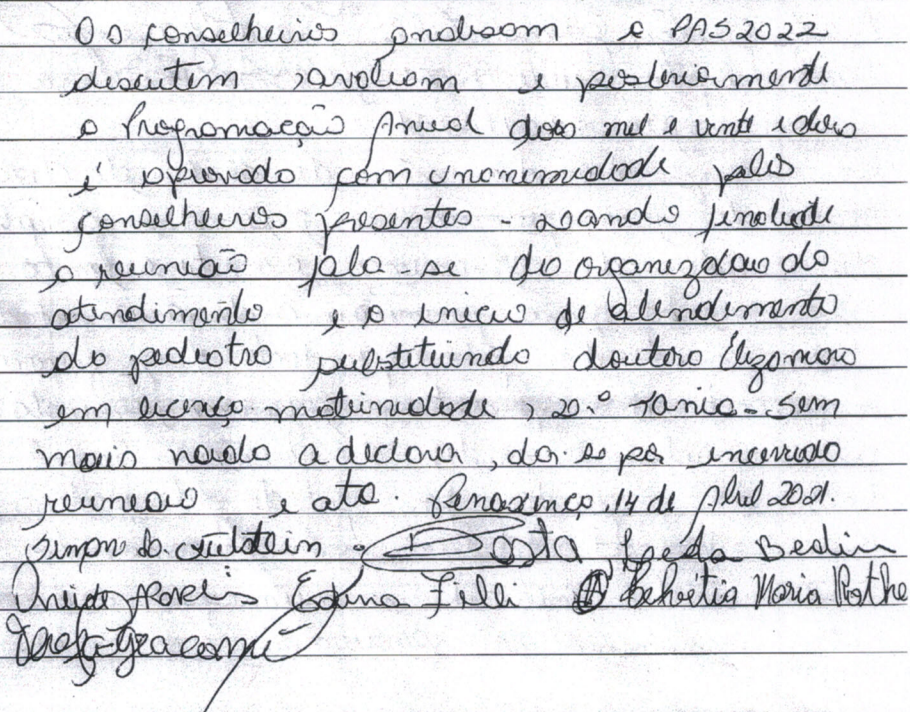 Os conselheiros analisam e PAS 2022
discutem, avaliam e posteriormente
a Programação Anual dois mil e vinte e dois
é aprovado com unanimidade pelos
conselheiros presentes - quando finaliade
a reunião fala-se da organização do
atendimento e o inicio de atendimento
do pediatra substituindo doutora
em licença maternidade, Tania - Sem
mais nada a declarar, da-se por encerrado
reuniao e ata. 14 de Abril 2021.
Costa Ieda Beslin
Edina Filli Helvétia Maria Rothe
Giacomi